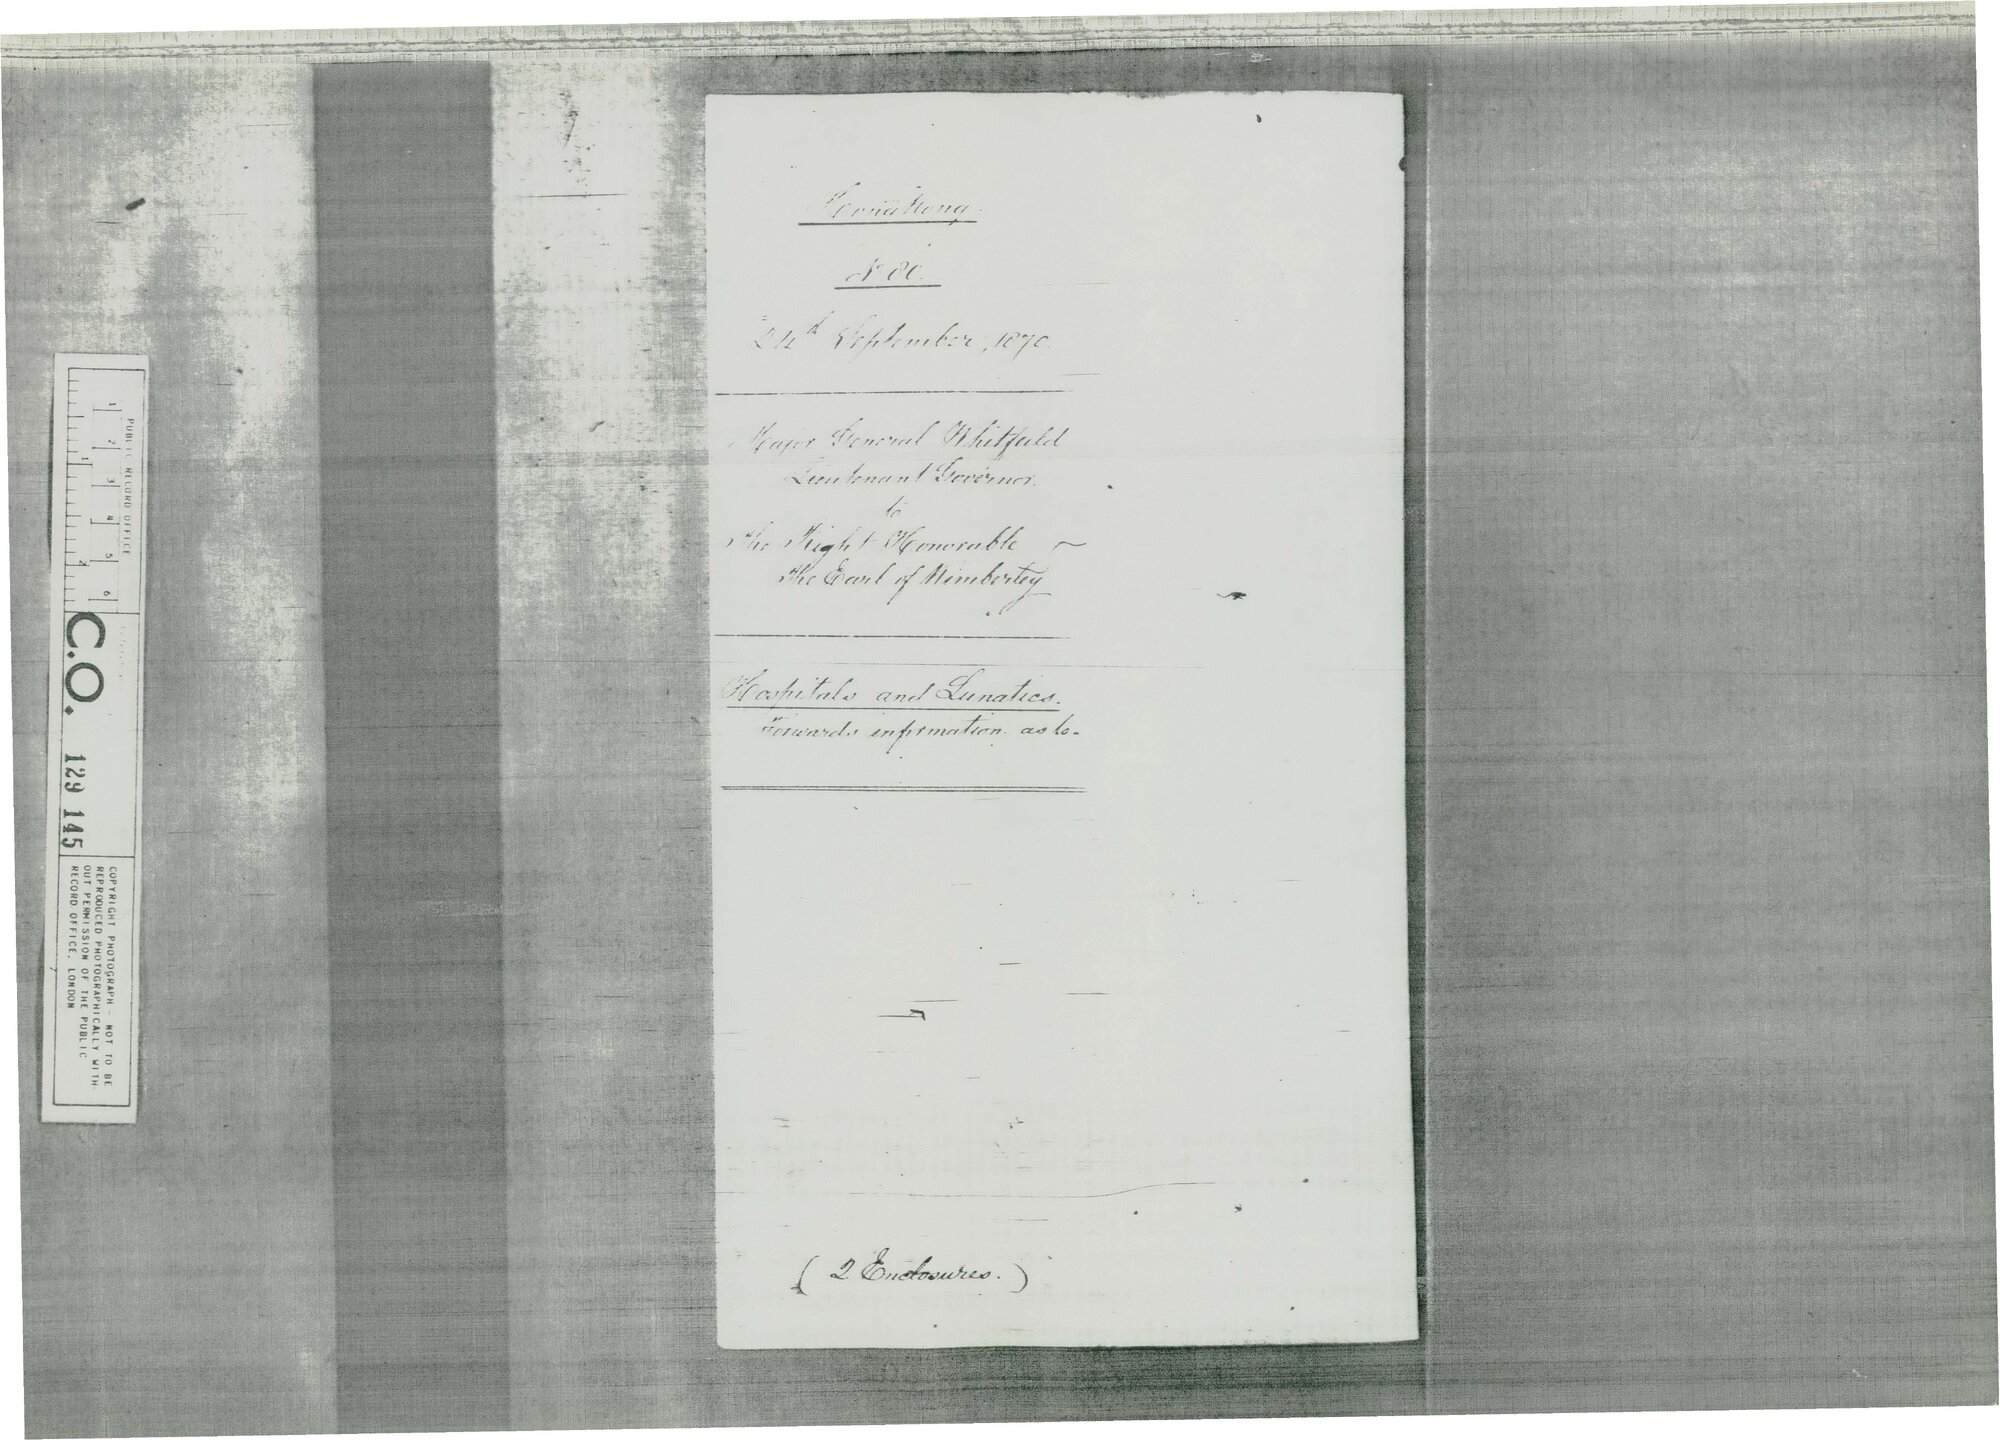 Hong Kong.
Nº 80.
24th September, 1870.
Major General Whitfield
Lieutenant Governor.
to
The Right Honorable
The Earl of Kimberley
Hospitals and Lunatics.
Forwards information as to.
( 2 Enclosures. )
PUBLIC RECORD OFFICE
1 2 3 4 5 6
1 2
C.O. 129 145
COPYRIGHT PHOTOGRAPH - NOT TO BE
REPRODUCED PHOTOGRAPHICALLY WITH-
OUT PERMISSION OF THE PUBLIC
RECORD OFFICE, LONDON